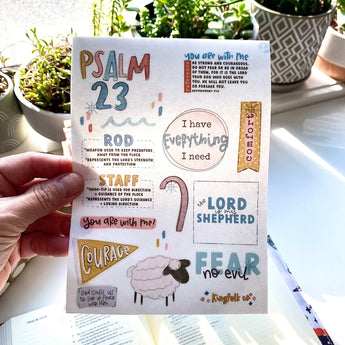 PSALM
23
you are with me
BE STRONG AND COURAGEOUS.
DO NOT FEAR OR BE IN DREAD
OF THEM, FOR IT IS THE LORD
YOUR GOD WHO GOES WITH
YOU. HE WILL NOT LEAVE YOU
OR FORSAKE YOU.
DEUTERONOMY 31:6
I have
Everything
I need
COMFORT
ROD
*WEAPON USED TO KEEP PREDATORS
AWAY FROM THE FLOCK
*REPRESENTS THE LORD'S STRENGTH
AND PROTECTION
STAFF
*HOOK-TIP IS USED FOR DIRECTION
+ GUIDANCE OF THE FLOCK
*REPRESENTS THE LORD'S GUIDANCE
+ LOVING DIRECTION
you are with me!
the LORD
is my
SHEPHERD
COURAGE
FEAR
no evil
God calls us
with Him
Kingfolk co